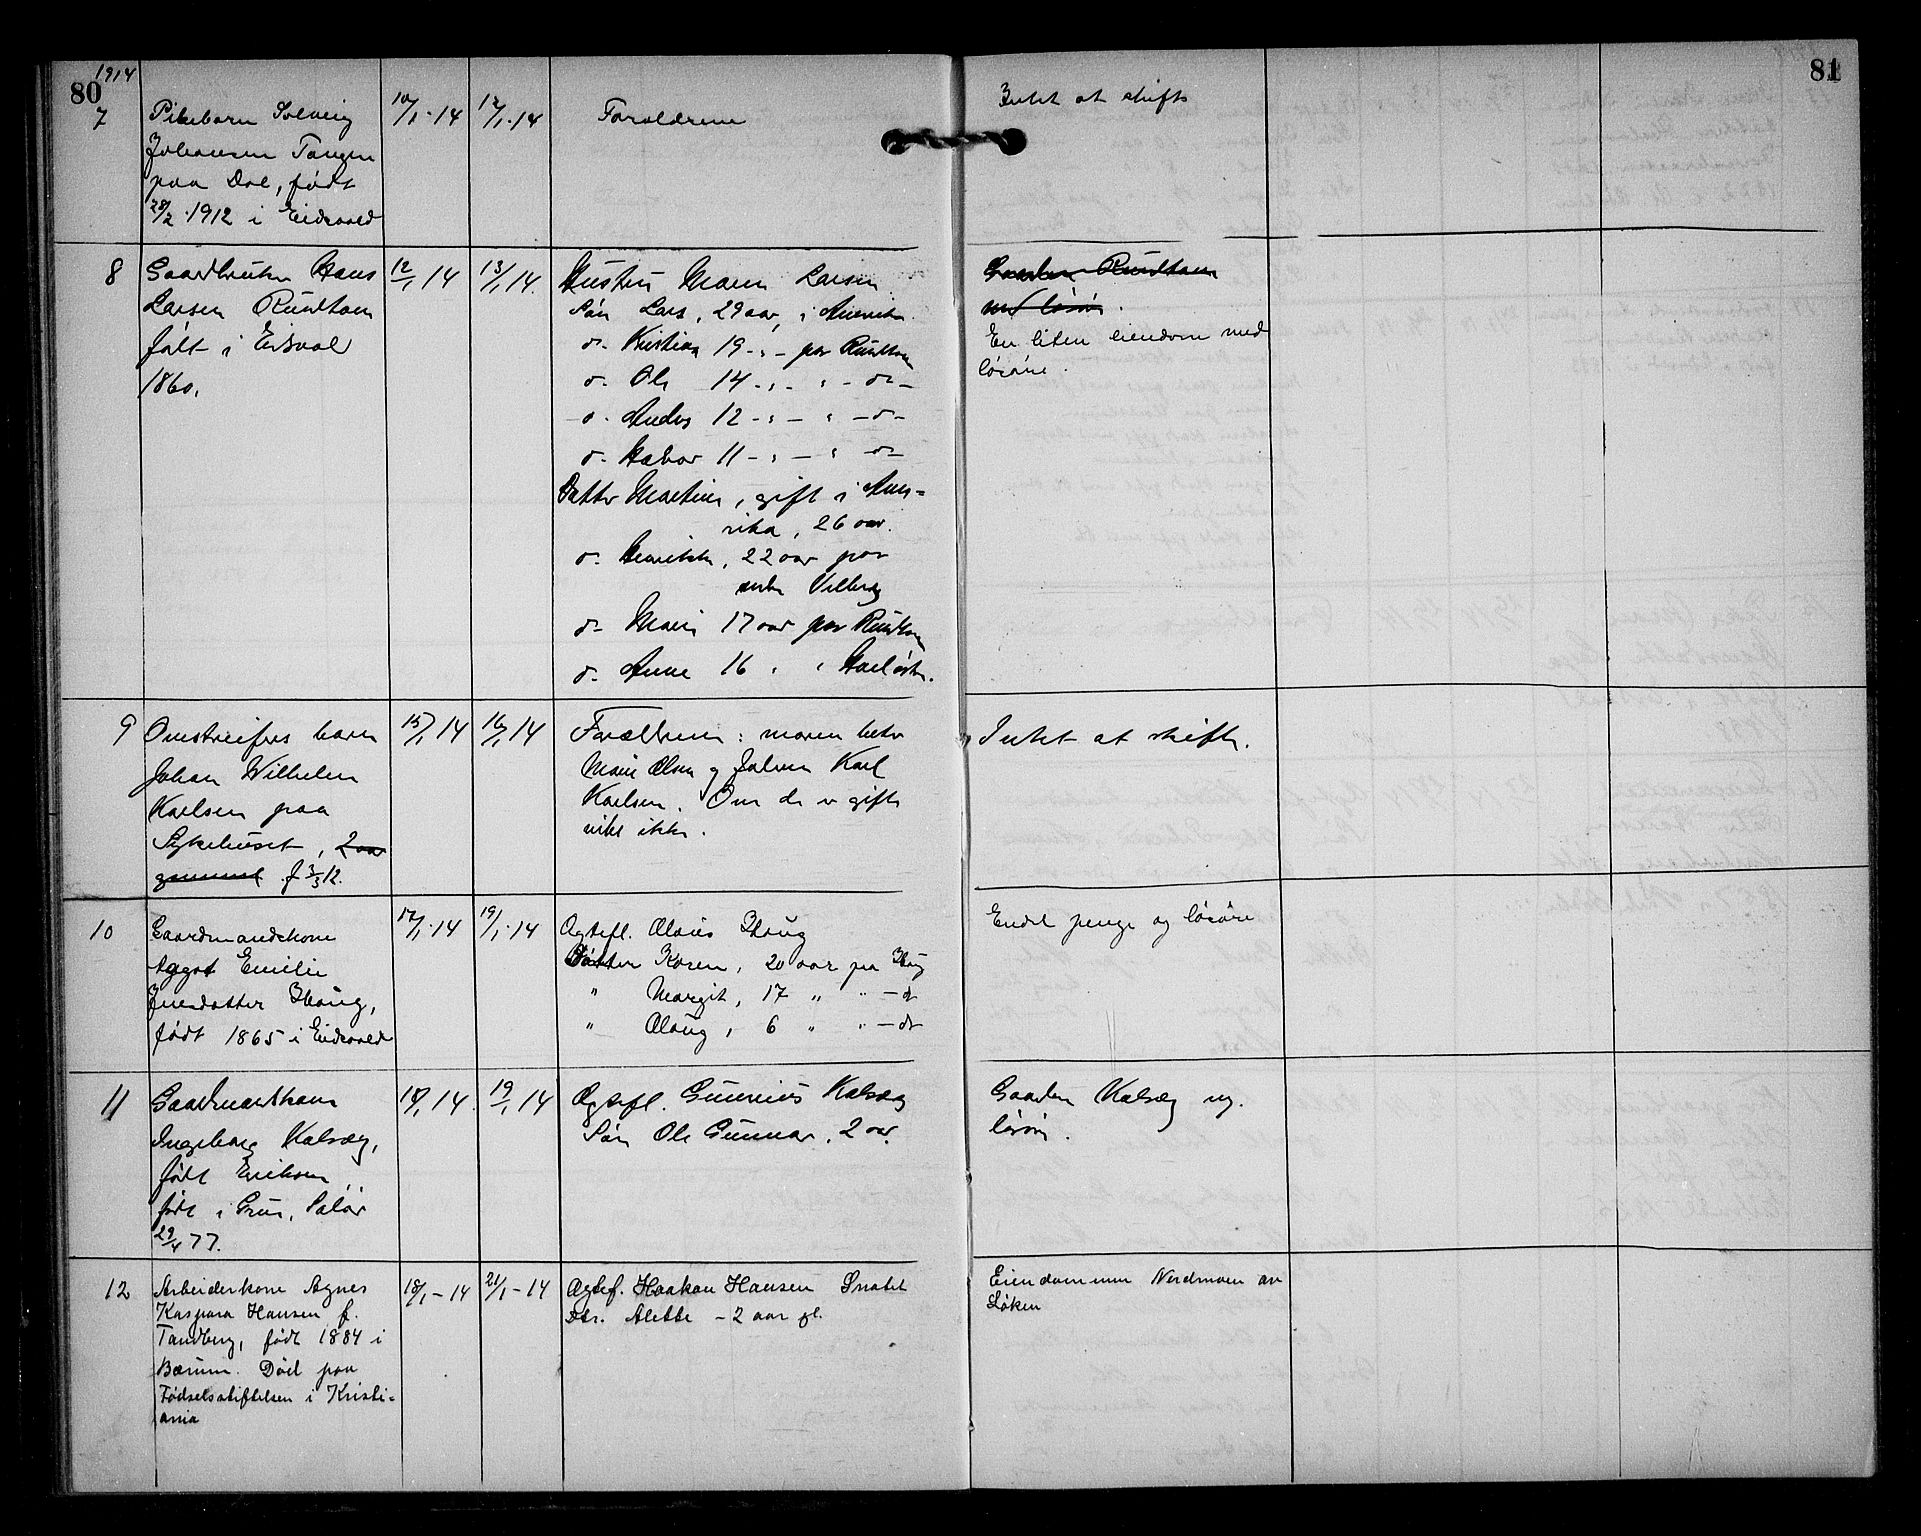 80
1914
81
7
Pikebarn Solveig
Johansen Tangen
paa Dal, født
28/2 1912 i Eidsvold
10/1-14
12/1-14
Forældrene
Intet at skifte
8
Gaardbruker Hans
Larsen Rundtom
født i Eidsvol
1860.
12/1 14
13/1 14.
Hustru Maren Larsen.
Søn Lars, 29 aar, i Amerika
do- Kristian 19 -"- paa Rundtom
do- Ole 14 -"- " -do-
do- Anders 12 -"- " -do-
do- Hakon 11 -"- " do-
Datter Martine, gift i Ame=
rika, 26 aar.
do- Henrikke, 22 aar paa
Vilberg
do- Marie 17 aar paa Rundtom
do- Anne 16 " "
Gaarden Rundtom
m/ løsøre.
En liten eiendom med
løsøre.
9
Omstreifers barn
Johan Wilhelm
Karlsen paa
Sykehuset, 2 aar
gammel f 3/3 12.
15/1 14
16/1 14
Forældrene: moren heter
Marie Olsen og faderen Karl
Karlsen. Om de er gifte
vites ikke.
Intet at skifte.
10
Gaardmandskone
Aggot Emilie
Jensdatter Ihaug,
født 1865 i Eidsvold
17/1-14
19/1-14
Ægtefl. Olaus Ihaug
Datter Karen, 20 aar paa Ihaug
" Margit, 17 " " -do
" Olaug, 6 " " -do
Endel penge og løsøre
11
Gaardmandskone
Ingeborg Kalsæg,
født Eriksen,
født i Grue, Solør
29/4 77.
18/1 14.
19/1 14
Ægtefl. Gunerius Kalsæg
Søn Ole Gunnar, 2 aar.
Gaarden Kalsæg og
løsøre.
12
Arbeiderkone Agnes
Kaspara Hansen f.
Tandberg, født 1884 i
Bærum. Død paa
Fødselsstiftelsen i Kristi=
ania
18/1-14
21/1-14
Ægtef. Haakon Hansen Snatet
Dtr. Alette - 2 aar gl.
Eiendommen Nordmoen av
Løken